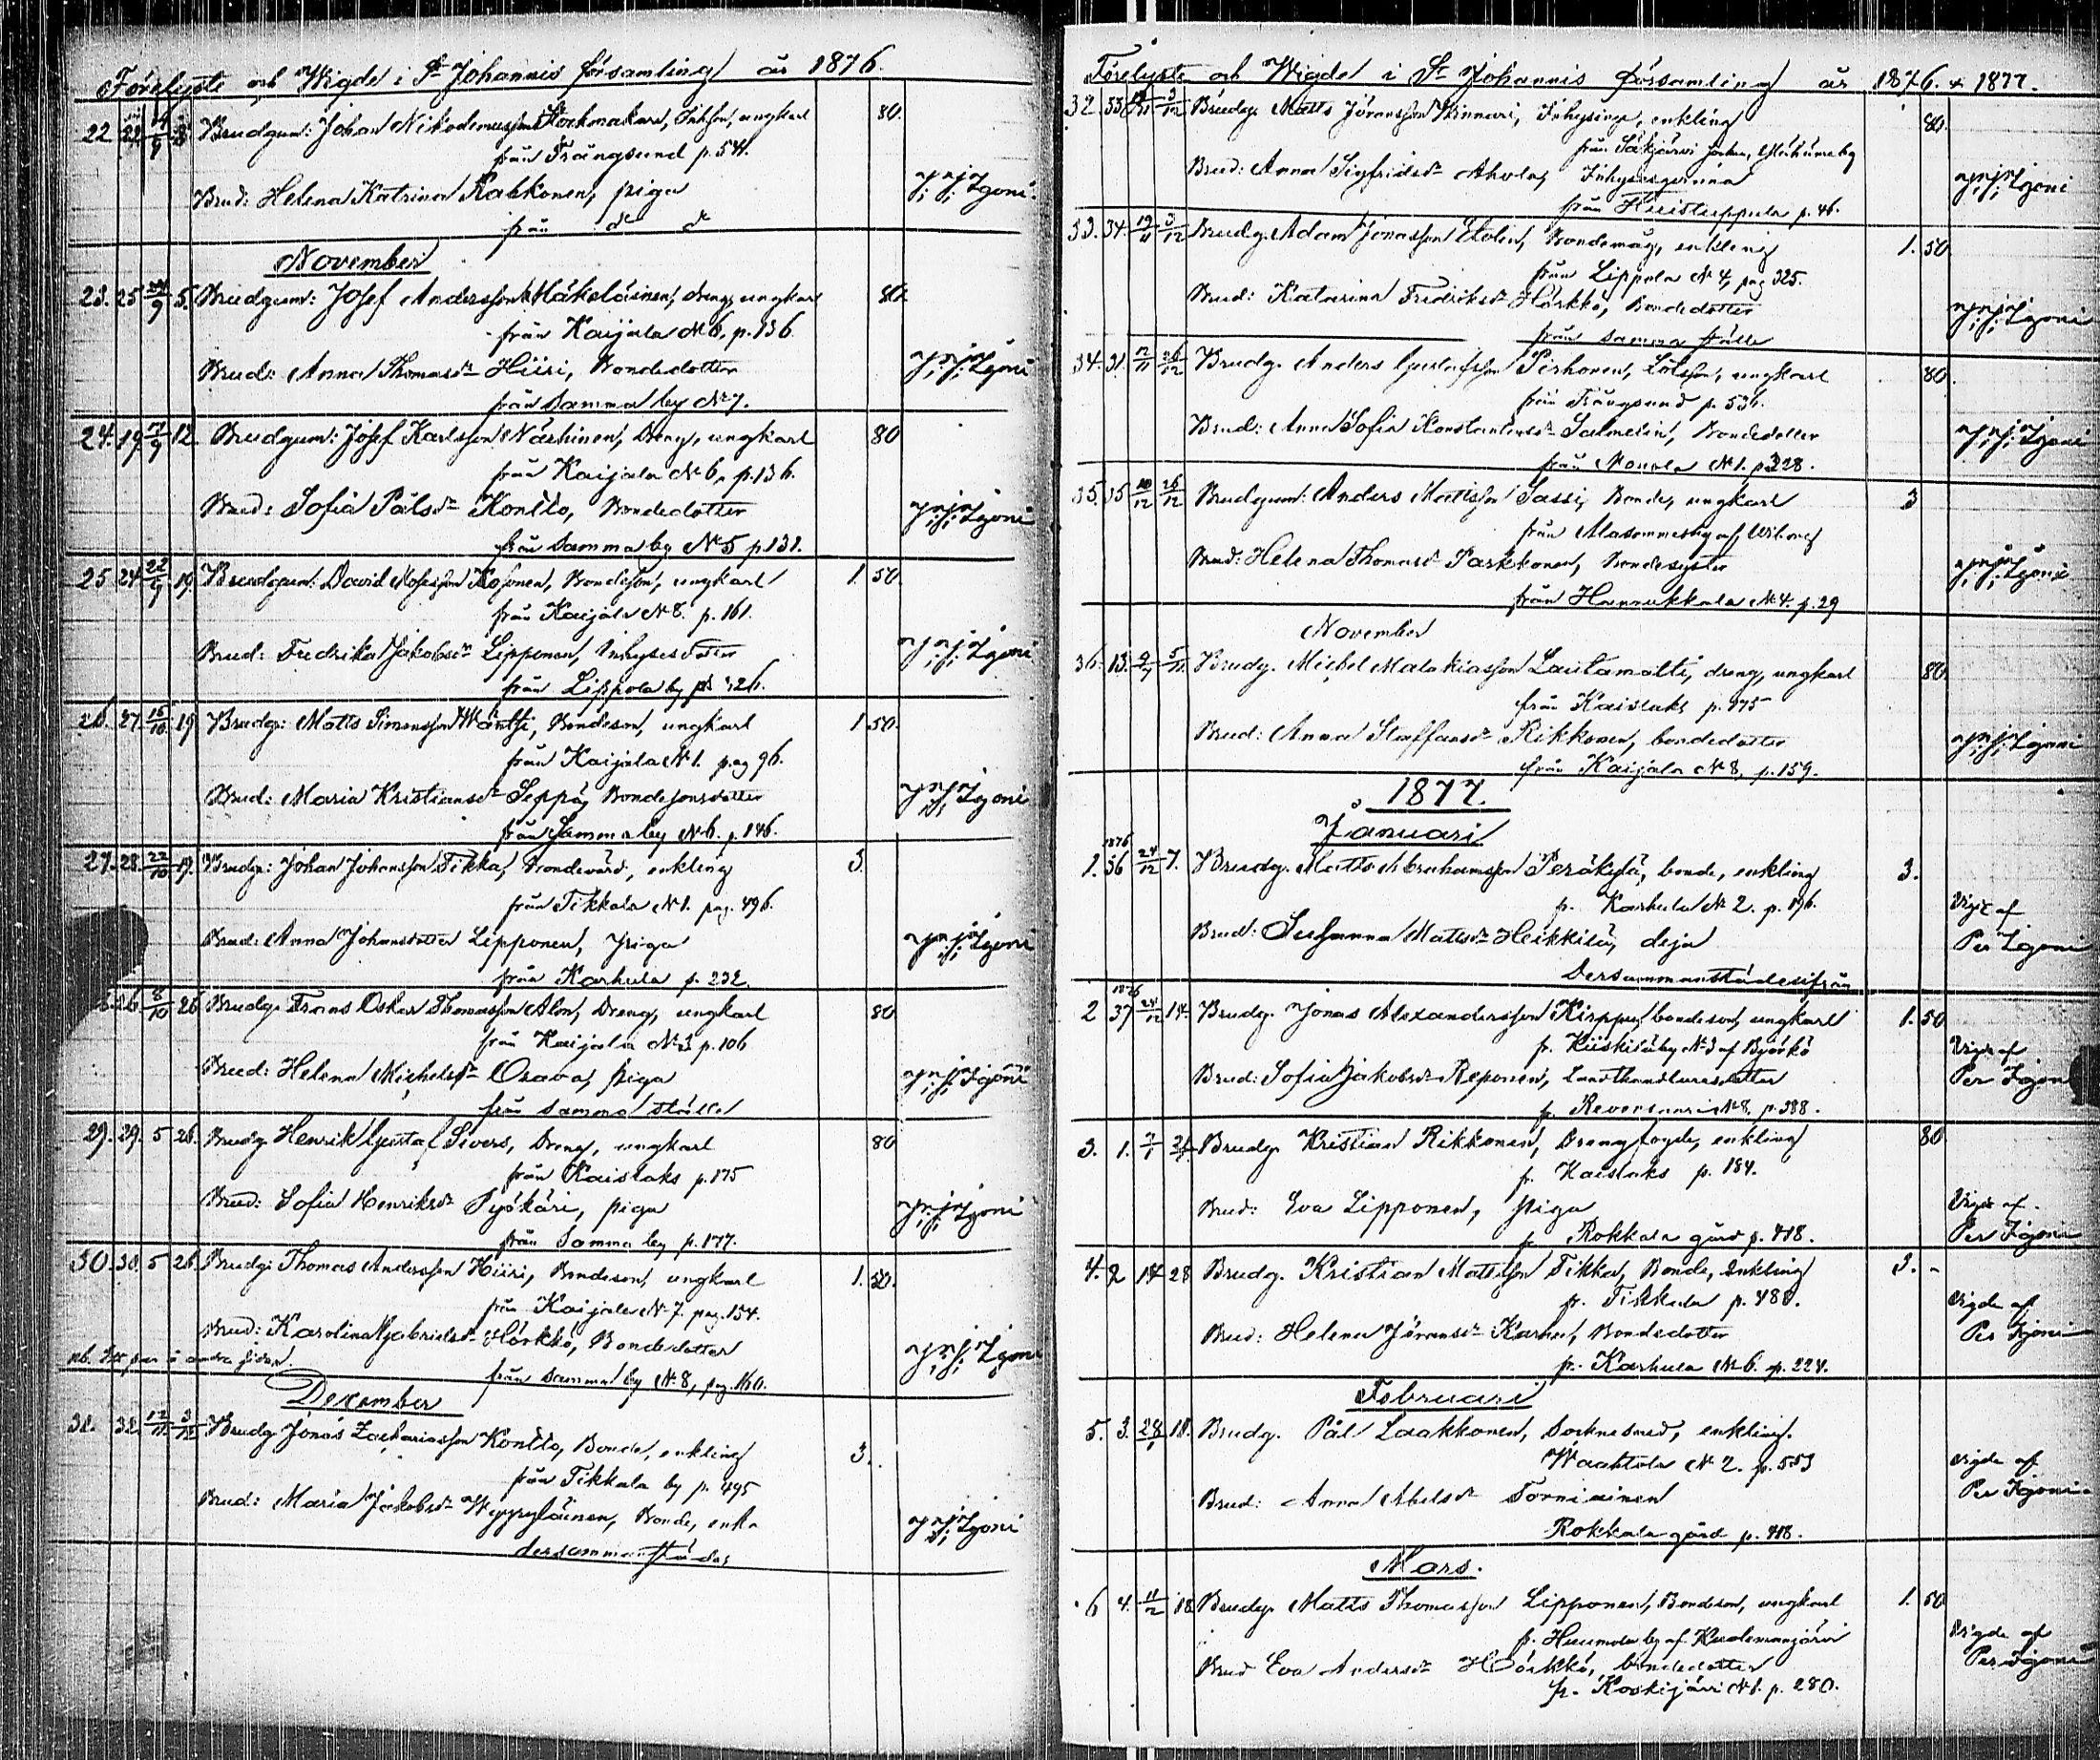 Förelyste och Wigde i St Johannis församling år 1876.
22 22 9 Brudgum: Johan Nikodemusson Stockmakare, Inhson, ungkarl 80.
från Trångsund p. 541.
Brud: Helena Katrina Kabkonen, piga
från d:o d:o
November
23. 25 9 5. Brudgum: Josef Andersson Mäkeläinen, dreng, ungkarl 80.
från Kaijala N 6, p. 136.
Brud: Anna Thomasdr Hiiri, Bondedotter
från samma by N 7.
24. 19. 7/9 12. Brudgum: Josef Karlsson Närhinen, Dreng, ungkarl 80
från Kaijala N 6, p. 136.
Brud: Sofia Pålsdr Kontto, Bondedotter
från samma by N 5 p. 131.
25 24 22/9 19. Brudgum: David Mosesson Kosonen, Bondeson, ungkarl 1. 50.
från Kaijala N 8. p. 161.
Brud: Fredrika Jakobsdr Lipponen, Inhysesdotter
från Lippola by p. 326.
26. 27. 15/10 19 Brudg: Matts Simonsson Mäntti, Bondeson, ungkarl 1 50.
från Kaijala N 1. pag 96.
Brud: Maria Kristiansdr Seppä, Bondesonsdotter
från Samma by N 6. p. 146.
27. 28. 22/10 19. Brudg: Johan Johansson Tikka, Bondevärd, enkling 3.
från Tikkala N 1. pag. 496.
Brud: Anna Johansdotter Lipponen, piga
från Karhula p. 232.
26. 8/10 26 Brudg: Frans Oskar Thomasson Alon, Dreng, ungkarl 80
från Kaijala N 3 p. 106
Brud: Helena Michelsdr Orava, piga
från samma ställe
29. 29. 5 26. Brudg: Henrik Gustaf Sivers, Dreng, ungkarl 80
från Kaislaks p. 175
Brud: Sofia Henriksdr Pyökäri, piga
från Samma by p. 177.
30. 30. 5 26. Brudg: Thomas Andersson Hiiri, Bondeson, ungkarl 1. 50.
från Kaijala N 7. pag. 154.
Brud: Karolina Gabrielsdr Hörkkö, Bondedotter
nb. Ett par å andra sidan. från samma by N 8, pag. 160.
December
31. 32. 12/11 3/12 Brudg: Jonas Zachariasson Kontto, Bonde, enkling 3.
från Tikkala by p. 495
Brud: Maria Jakobsdr Wepsyläinen, Bonde, enka
dersammastädes
Förelyste och Wigde i St Johannis församling år 1876. & 1877.
32. 33 3/12 Brudg: Matts Jöransson Kinnari, Inhysing, enkling 80.
från Säkjärvi socken,
Brud: Anna Sigfridsdr Ahola, Inhysesqvinna
från Huistuppula p. 46.
33. 34. 19/11 3/12 Brudg. Adam Jonasson Etolin, Bondemåg, enkling 1. 50.
från Lippola N 4, pag 325.
Brud: Katarina Fredriksdr Hörkkö, Bondedotter
från samma ställe
34. 31. 26/12 Brudg. Anders Gustafsson Pirhonen, Lotsson, ungkarl 80.
från Trångsund p. 536.
Brud: Anna Sofia Konstantinsdr Salmelin, Bondedotter
från Monola N 1. p. 328.
35. 35 10/12 26/12 Brudgum: Anders Mattsson Sassi, Bonde, ungkarl 3
från Alasommesby af Wiborg
Brud: Helena Thomasdr Parkkonen, Bondesyster
från Hannukkala N 4. p. 29
November
36. 13. 5/11 Brudg. Michel Malakiasson Lautamatti, dreng, ungkarl 80.
från Kaislaks p. 175
Brud: Anna Staffansdr Rikkonen, bondedotter
från Kaijala N 8, p. 159.
1877.
Januari
1876
1. 36 24/12 7. Brudg. Matts Abrahamsson Peräkylä, bonde, enkling 3.
fr. Karhula N 2. p. 196.
Vigde af
Brud: Susanna Mattsdr Heikkilä, deja
Per Zgoni
dersammastädesifrån
1876
2 37 24/12 14. Brudg. Jonas Alexandersson Kirppu, bondeson, ungkarl 1. 50
fr. Kiiskiläby N 3 af Björkö
Vigde af
Brud: Sofia Jakobsdr Reponen, Landthandlaresdotter
fr. Revonsaari N 8, p. 388.
3. 1. 7/1 Brudg. Kristian Rikkonen, Drengfogde, enkling 80
fr. Kaislaks p. 184.
Brud: Eva Lipponen, piga
Vigde af.
fr. Rokkala gård p. 418.
4. 2 14 28 Brudg. Kristian Mattsson Tikka, Bonde, Enkling 3. -
fr. Tikkala p. 480.
Vigde af
Brud: Helena Jöransdr Karhu, Bondedotter
fr. Karhula N 6. p. 224.
Februari
5. 3. 28/1 18. Brudg. Pål Laakkonen, Socknesmed, enkling.
Waahtola N 2. p. 553
Vigde af
Brud: Anna Abelsdr Torniainen
Rokkala gård p. 418.
Mars.
6 4. 11/2 18 Brudg. Matts Thomasson Lipponen, Bondeson, ungkarl 1. 50
fr. Huumola by af Kuolemanjärvi
Vigde af
Brud Eva Andersdr Hörkkö, bondedotter
fr. Koskijärvi N 1. p. 280.